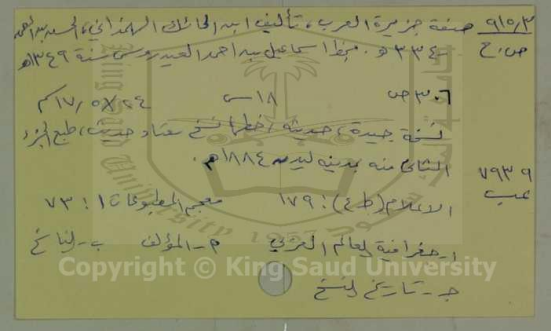 ٩١٥٫٣ صفة جزيرة العرب، تأليف ابن الحائك الهمداني، الحسن بن أحمد
ص.ح ٣٣٤هـ. بخط اسماعيل بن احمد العيدروسي سنة ١٣٤٩هـ
٣٠٦ص ١٨س ٢٤×١٧٫٥سم
نسخة جيدة، حديثة، خطها نسخ معتاد حديث، طبع الجزء
الثاني منه بمدينة ليدن ١٨٨٤م.
٧٩٣٩
الاعلام (ط٤): ١٧٩ معجم المطبوعات ١: ٧٣
١- جغرافية العالم العربي أ- المؤلف ب- الناسخ
ج- تاريخ النسخ
Copyright © King Saud University
1957